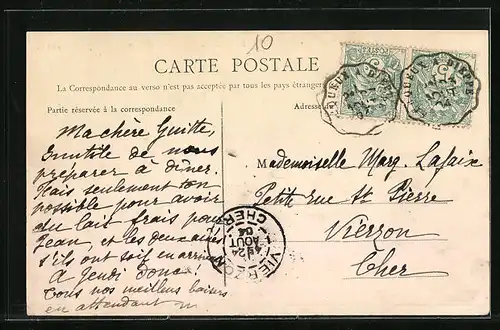 10
CARTE POSTALE
La Correspondance au verso n'est pas acceptée par tous les pays étrangers
Partie réservée à la correspondance
Adresse
Ma chère Guitte,
Inutile de nous
préparer à dîner.
Fais seulement ton
possible pour avoir
du lait frais pour
Jean, et les deux aînés
s'ils ont soif en arrivant
A Jeudi donc!
Tous nos meilleurs baisers
en attendant
Mademoiselle Marg. Lafaix
Petite rue St Pierre
Vierzon
Cher
VIERZON
24
AOUT
04
CHER
A DIEPPE
A DIEPPE